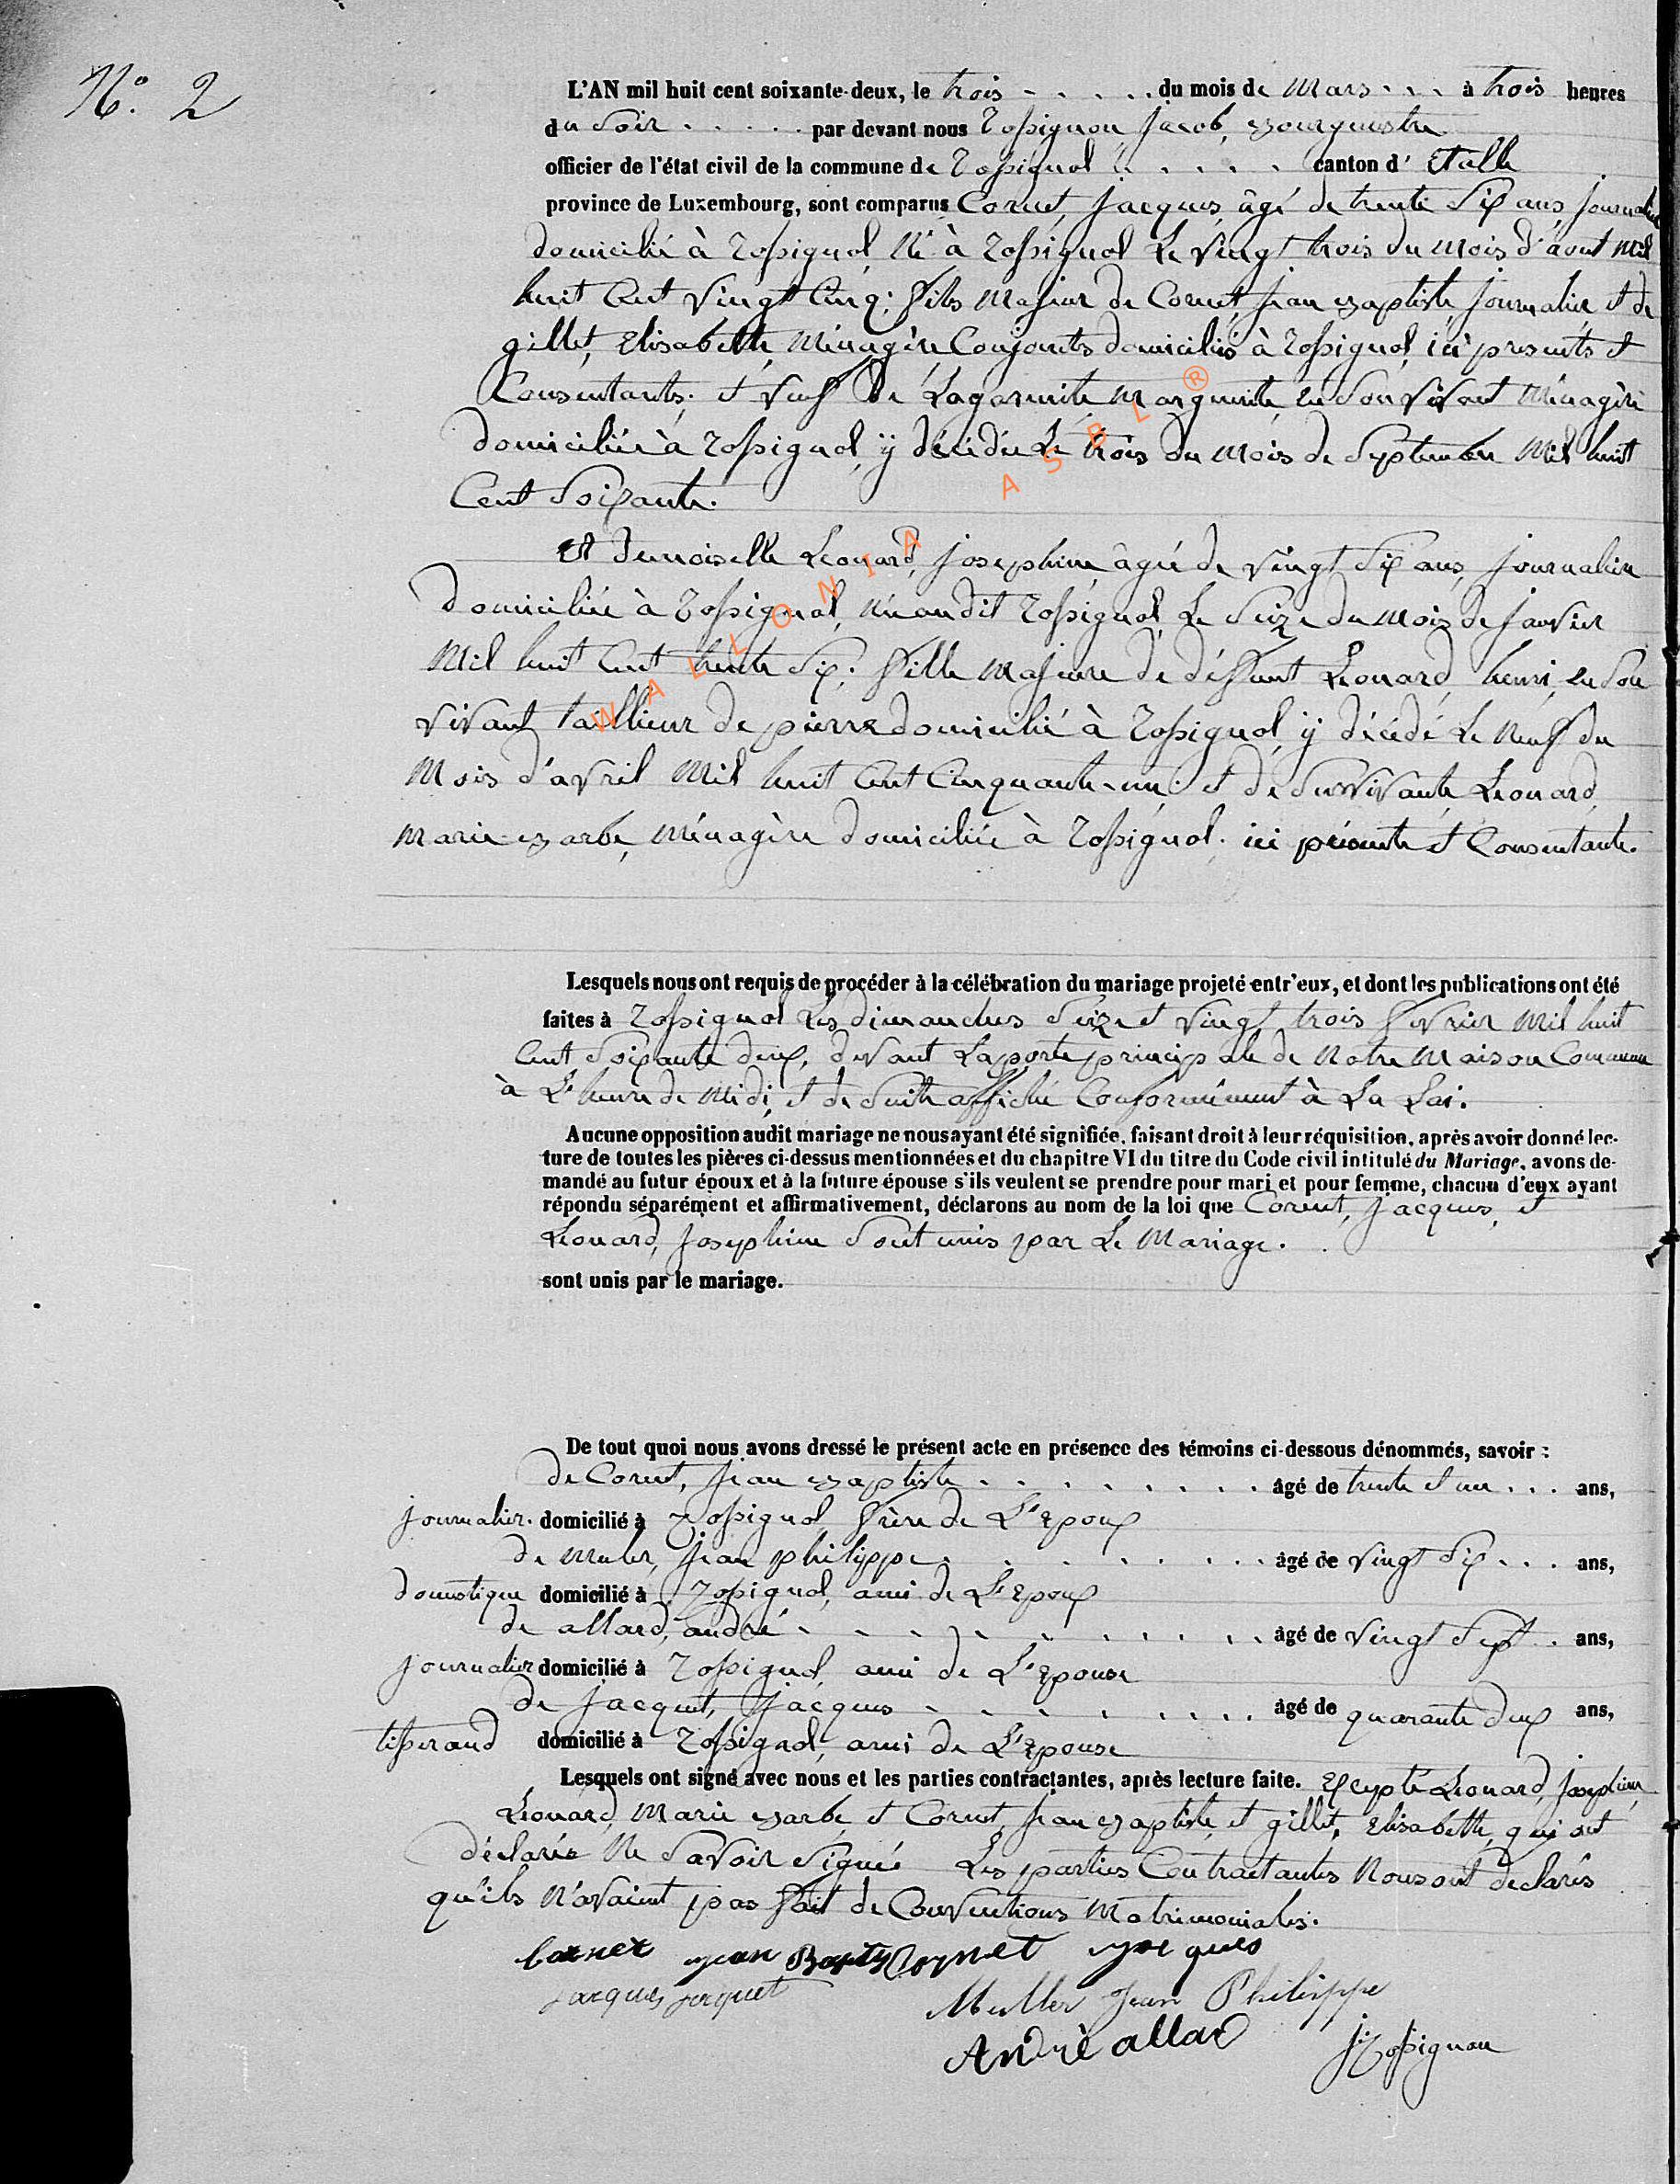 N.o 2
L'AN mil huit cent soixante-deux, le trois - . . . . du mois de Mars . . . à trois heures
du Soir . . . . . par devant nous Rossignon Jacob, Bourgmestre
officier de l'état civil de la commune de Rossignol . . . . . canton d' Etalle
province de Luxembourg, sont comparus Cornet, Jacques, âgé de trente Six ans, Journalier
domicilié à Rossignol, Né à Rossignol Le Vingt trois du Mois d'aout Mil
huit Cent Vingt Cinq; fils Majeur de Cornet, Jean Baptiste, Journalier et de
gillet, Elisabette, Ménagère Conjoints domiciliés à Rossignol, ici presents et
Consentants; et Veuf de Lagarmite Marguerite, en Son Vivant Ménagère
domiciliée à Rossignol, ÿ décédée Le trois du Mois de Septembre Mil huit
Cent Soixante.
Et demoiselle Léonard, Josephine, âgée de Vingt Six ans, Journalière
domiciliée à Rossignol, Née audit Rossignol, Le Seize du Mois de Janvier
Mil huit Cent trente Six; fille Majeure de déffunt Léonard, henri, en Son
Vivant taillieur de pierre domicilié à Rossignol, ÿ décédé Le Neuf du
Mois d'avril Mil huit Cent Cinquante-un; et de Survivante Léonard,
Marie Barbe, Ménagère domiciliée à Rossignol; ici présente et Consentante.
Lesquels nous ont requis de procéder à la célébration du mariage projeté entr'eux, et dont les publications ont été
faites à Rossignol Les dimanches Seize et Vingt trois fevrier Mil huit
Cent Soixante deux, devant La porte principale de Notre Maison Commune
à L'heure de Midi, et de Suite affiché Conformément à La Loi.
Aucune opposition audit mariage ne nous ayant été signifiée, faisant droit à leur réquisition, après avoir donné lec-
ture de toutes les pièces ci-dessus mentionnées et du chapitre VI du titre du Code civil intitulé du Mariage, avons de-
mandé au futur époux et à la future épouse s'ils veulent se prendre pour mari et pour femme, chacun d'eux ayant
répondu séparément et affirmativement, déclarons au nom de la loi que Cornet, Jacques, et
Léonard, Josephine Sont unis par Le Mariage.
sont unis par le mariage.
De tout quoi nous avons dressé le présent acte en présence des témoins ci-dessous dénommés, savoir :
de Cornet, Jean Baptiste . . . . . . . . âgé de trente et un . . . ans,
Journalier. domicilié à Rossignol, frère de L'Epoux
de Muler, Jean philippe . . . . . . . . âgé de Vingt Six . . . ans,
domestique domicilié à Rossignol, ami de L'Epoux
de allard, andré . . . . . . . . . . âgé de Vingt Sept . ans,
Journalier domicilié à Rossignol, ami de L'Epouse
de Jacquet, Jacques . . . . . . . . âgé de quarante deux ans,
tisserand domicilié à Rossignol, ami de L'Epouse
Lesquels ont signé avec nous et les parties contractantes, après lecture faite. Excepté Léonard, Josephine,
Léonard, Marie Barbe, et Cornet, Jean Baptiste, et gillet, Elisabette, qui ont
déclarés Ne Savoir Signée Les parties Contractantes Nous ont déclarés
qu'ils N'avaient pas fait de Conventions Matrimoniales.
Cornet Jean Bapts Cornet Jacques
Jacques Jacquet Muller Jean Philippe
Andrè allard J Rossignon
WALLONIA ASBL ®